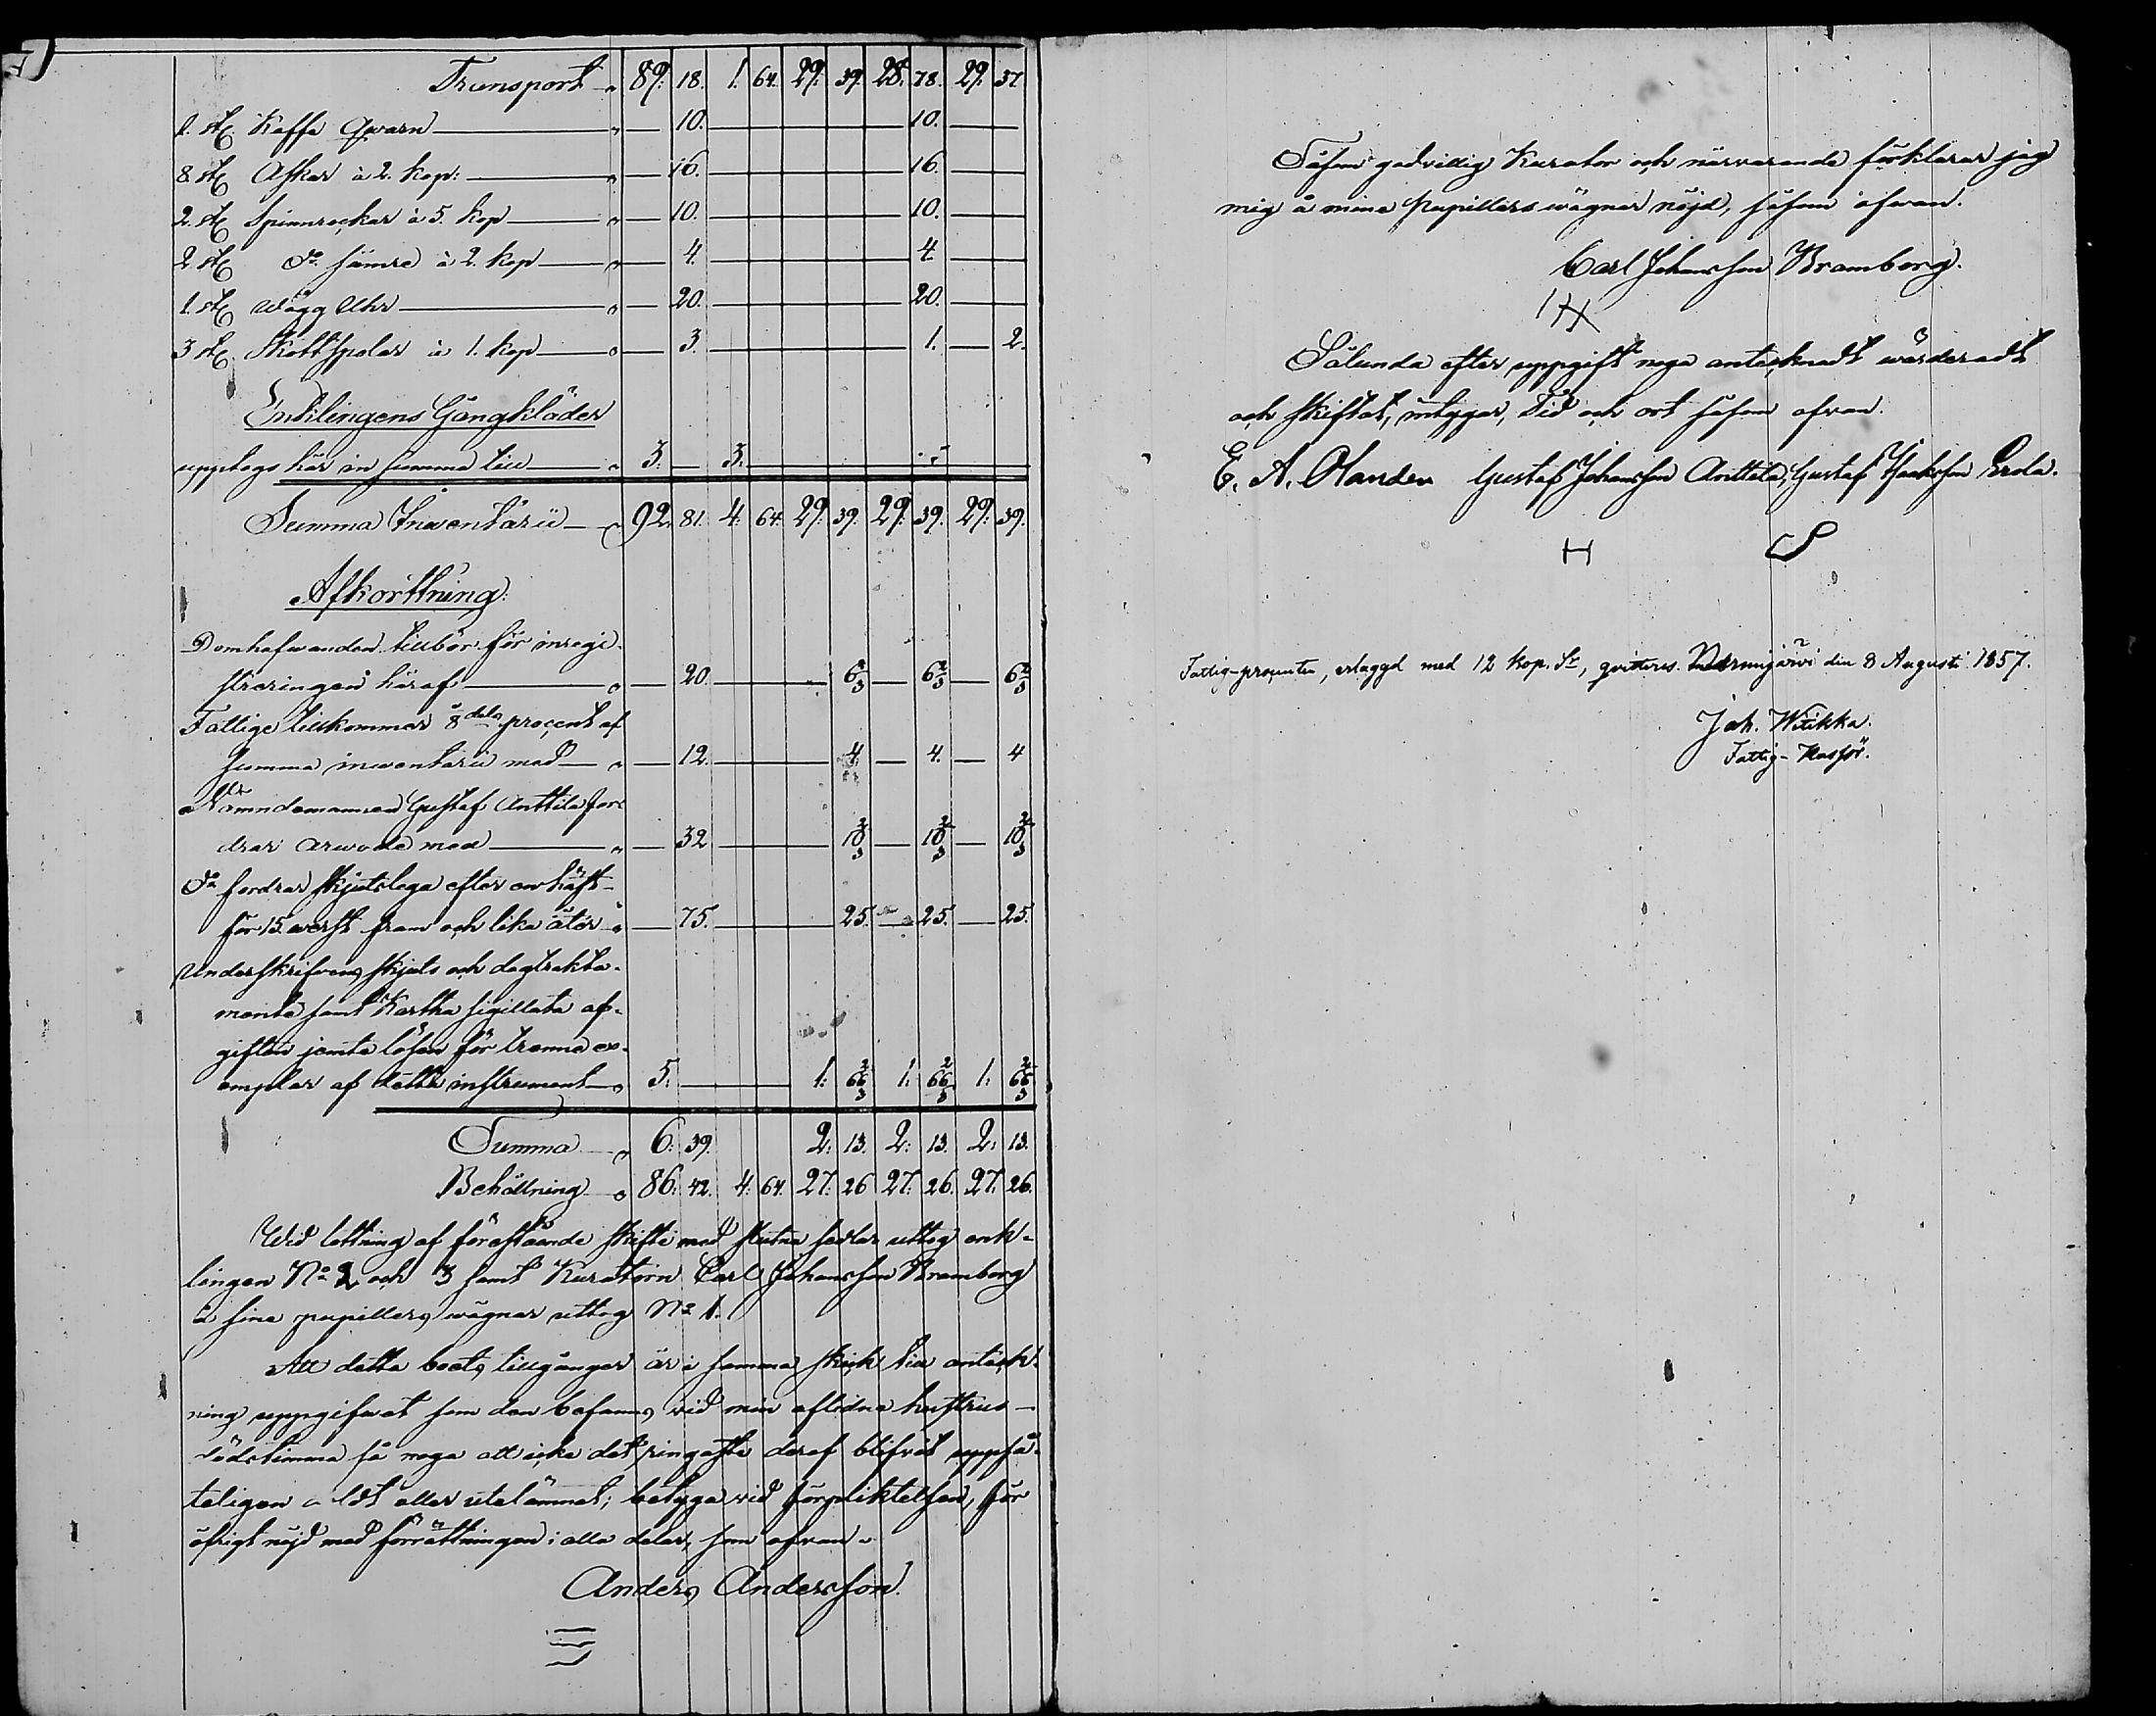 Transport " 89. 18. 1. 64. 29. 39. 28. 78. 29. 37
1. st. Kaffe Qvarn " 10. 10.
8. st. Askar à 2. kop: " 16. 16.
2. st. Spinnrockar à 5. kop " 10. 10.
2. st. do sämre à 2. kop " 4. 4.
1. st. wägg Uhr " 20. 20.
3 st. Skottspolar à 1. kop " 3. 1. 2.
Enklingens Gångkläder
upptogs här in summa till " 3. 3.
Summa Inwentarii " 92. 81. 4. 64. 29. 39. 29. 39. 29. 39.
Afkorttning.
Domhafwanden tillbör för inregi-
streringen häraf " 20. 6 2/3 6 2/3 6 2/3
Fattige tillkommer 8dels procent af
summa inwentarii med " 12. 4. 4. 4
Nämndemannen Gustaf Anttila for-
drar arwode med " 32 10 2/3 10 2/3 10 2/3
do fordrar skjutslega efter en häst
för 15. werst fram och lika åter " 75. 25. 25. 25.
Underskrifvens skjuts och dagtrakta-
mente samt Kartha sigillata af-
giften jemte lösen för trenne ex-
emplar af detta instrument " 5. 1. 66 2/3 1. 66 2/3 1. 66 2/3
Summa " 6. 39. 2. 13. 2. 13. 2. 13.
Behållning " 86. 42. 4. 64. 27. 26 27. 26. 27. 26.
Wid lottning af förestående skifte med slutna sedlar uttog enk-
lingen No 2 och 3 samt Kuratorn Carl Johansson Bramborg
å sine pupillers wägnar uttog No 1.
Att detta boets tillgångar är i samma skick till anteck-
ning uppgifwet som den befanns wid min aflidna hustrus
dödstimma så noga att icke det ringaste deraf blifvit uppså-
teligen eller utelämnat; betygar wid förpliktelsen, för
öfrigt nöjd med förrättningen i alla delar, som ofvan.
Anders Andersson.
Såsom godvillig Kurator och närvarande förklarar jag
mig å mina Pupillers wägnar nöjd, såsom ofwan.
Carl Johansson Bramborg.
Sålunda efter uppgift noga antecknadt wärderadt
och skiftat, intygar, Tid och ort såsom ofvan.
E. A. Olander Gustaf Johansson Anttila, Gustaf Isaksson Erola.
H S
Fattig-procenten, erlaggd med 12 kop. Sr, qvitteras. Nurmijärvi den 8 Augusti 1857.
Joh. Wiikka.
Fattig-Kassör.